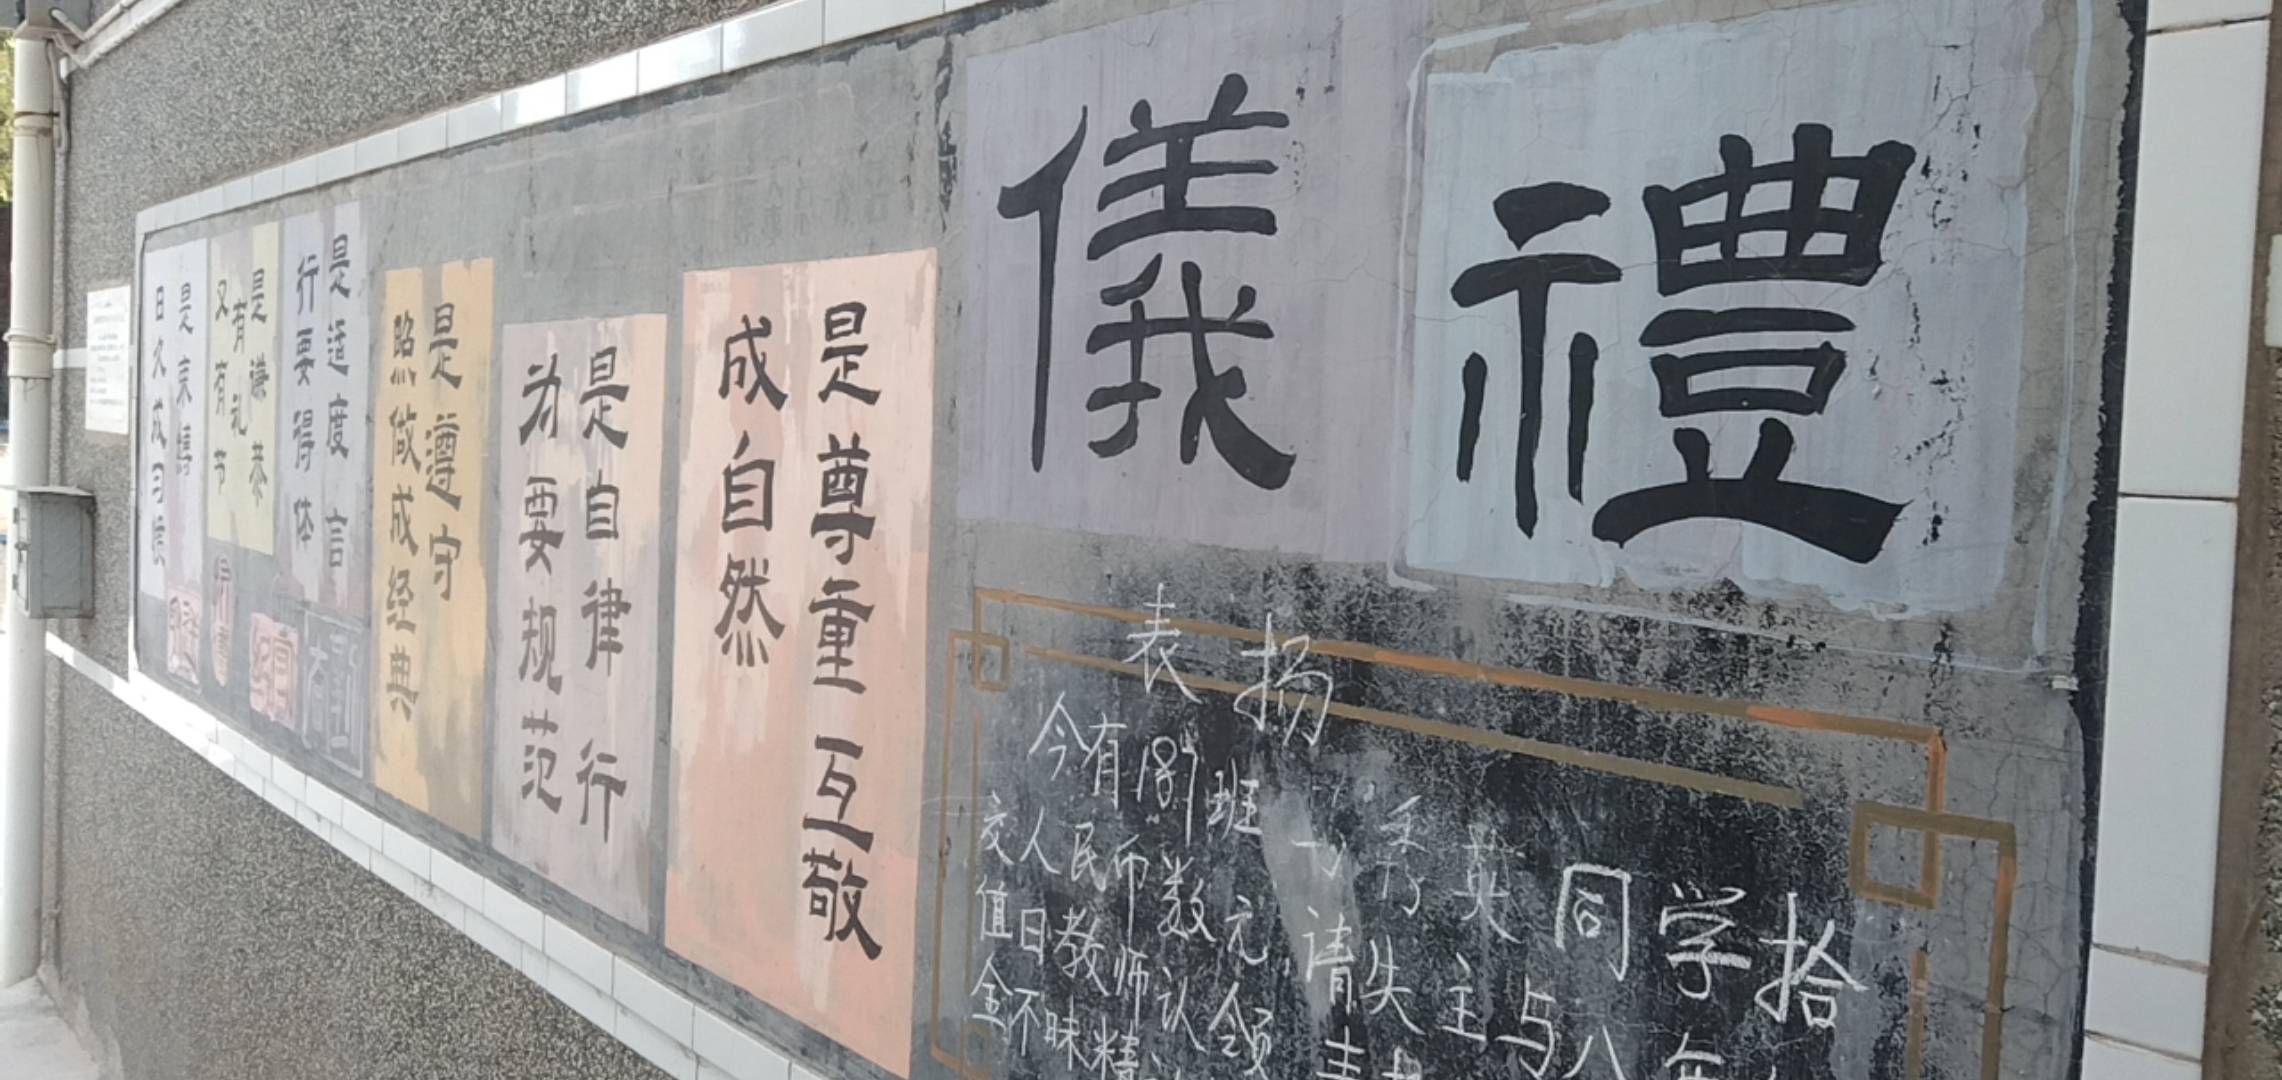 禮
儀
是尊重互敬
成自然
是自律行
为要规范
是遵守
照做成经典
是适度言
行要得体
是谦恭
有礼
又有节
是束缚
日久成习惯
表扬
今有187班 秀英同学拾
交人民币数元 请失主与八年
值日教师认领
金不昧精